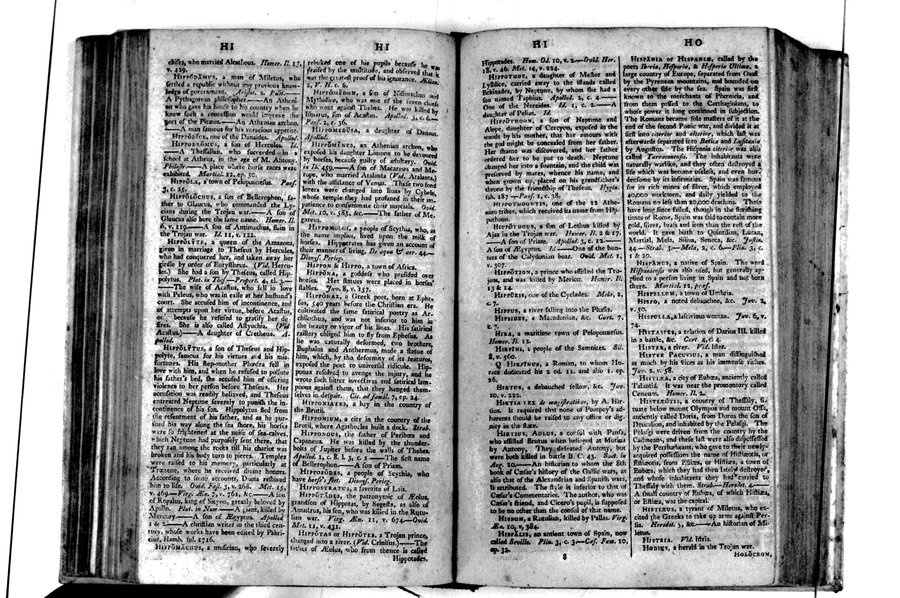 HI
HI
chises, who married Alcathous. Homer. Il. 13,
v. 429.
HIPPODĂMUS, a man of Miletus, who
settled a republic without any previous know-
ledge of government. Aristot. 2 Polit.
A Pythagorean philosopher—An Atheni-
an who gave his house to his country when he
knew such a concession would improve the
port of the Piræus.—An Athenian archon.
—A man famous for his voracious appetite.
HIPPODICE, one of the Danaides. Apollod.
HIPPODROMUS, a son of Hercules. Id.
—A Thessalian, who succeeded in a
school at Athens, in the age of M. Antony.
Philostr.—A place where horse races were
exhibited. Martial. 12, ep. 50.
HIPPŎLA, a town of Peloponnesus. Pauf.
3, c. 25.
HIPPOLŎCHUS, a son of Bellerophon, fa-
ther to Glaucus, who commanded the Ly-
cians during the Trojan war.—A son of
Glaucus also bore the same name. Homer. Il.
6, v. 119.—A son of Antimachus, slain in
the Trojan war. Id. 11, v. 122.
HIPPOLY̆TE, a queen of the Amazons,
given in marriage to Theseus by Hercules,
who had conquered her, and taken away her
girdle by order of Eurystheus. (Vid. Hercu-
les.) She had a son by Theseus, called Hip-
polytus. Plut. in Thes.—Propert. 4, el. 3.—
—The wife of Acastus, who fell in love
with Peleus, who was in exile at her husband's
court. She accused him of incontinence, and
of attempts upon her virtue, before Acastus,
because he refused to gratify her de-
sires. She is also called Astyochia. (Vid
Acastus.)—A daughter of Cretheus. A-
pollod.
HIPPOLY̆TUS, a son of Theseus and Hip-
polyte, famous for his virtues and his mis-
fortunes. His step-mother Phædra fell in
love with him, and when he refused to pollute
his father's bed, she accused him of offering
violence to her person before Theseus. Her
accusation was readily believed, and Theseus
entreated Neptune severely to punish the in-
continence of his son. Hippolytus fled from
the resentment of his father, and as he pur-
sued his way along the sea shore, his horses
were so frightened at the noise of sea-calves,
which Neptune had purposely sent there, that
they ran among the rocks till his chariot was
broken and his body torn to pieces. Temples
were raised to his memory, particularly at
Trœzene, where he received divine honors.
According to some accounts, Diana restored
him to life. Ovid Fast. 3, v. 268. Met. 15,
v. 469—Virg. Æn. 7, v. 761, &c.—A son
of Ropalus, king of Sicyon, greatly beloved by
Apollo. Plut. in Num—A giant, killed by
Mercury.—A son of Ægyptus. Apollod.
1 & 2.—A christian writer in the third cen-
tury, whose works have been edited by Fabri-
cius, Hamb. fol. 1716.
HIPPŎMĂCHUS, a musician, who severely
rebuked one of his pupils because he was
praised by the multitude, and observed that it
was the greatest proof of his ignorance. Ælian.
2, V. H. c. 6.
HIPPOMĔDON, a son of Nisimachus and
Mythidice, who was one of the seven chiefs
who went against Thebes. He was killed by
Ismarus, son of Acastus. Apollod. 3, c. 6.—
Pauf. 2, c. 36.
HIPPOMEDŪSA, a daughter of Danaus.
Apollod.
HIPPŎMĔNES, an Athenian archon, who
exposed his daughter Limone to be devoured
by horses, because guilty of adultery. Ovid.
in Ib. 459.—A son of Macareus and Me-
rope, who married Atalanta (Vid. Atalanta)
with the assistance of Venus. These two fond
lovers were changed into lions by Cybele,
whose temple they had profaned in their im-
patience to consummate their nuptials. Ovid.
Met. 10, v. 585, &c.—The father of Me-
gareus.
HIPPOMOLGI, a people of Scythia, who, as
the name implies, lived upon the milk of
horses. Hippocrates has given an account of
their manner of living. De aqua & aer. 44.—
Dionys. Perieg.
HIPPON & HIPPO, a town of Africa.
HIPPŌNA, a goddess who presided over
horses. Her statues were placed in horses'
stables. Juv. 8, v. 157.
HIPPŌNAX, a Greek poet, born at Ephe-
sus, 540 years before the Christian era. He
cultivated the same satirical poetry as Ar-
chilochus, and was not inferior to him in
the beauty or vigor of his lines. His satirical
raillery obliged him to fly from Ephesus. As
he was naturally deformed, two brothers,
Buphalus and Anthermus, made a statue of
him, which, by the deformity of its features,
exposed the poet to universal ridicule. Hip-
ponax resolved to avenge the injury, and he
wrote such bitter invectives and satirical lam-
poons against them, that they hanged them-
selves in despair. Cic. ad famil. 7, ep. 24.
HIPPONIATES, a bay in the country of
the Brutii.
HIPPONIUM, a city in the country of the
Brutii, where Agathocles built a dock. Strab.
HIPPONOUS, the father of Peribœa and
Capaneus. He was killed by the thunder-
bolts of Jupiter before the walls of Thebes.
Apollod. 1, c. 8. l. 3, c. 1.—The first name
of Bellerophon.—A son of Priam.
HIPPOPŎDES, a people of Scythia, who
have horses' feet. Dionys. Perieg.
HIPPOSTRATUS, a favorite of Lais.
HIPPŎTĂDES, the patronymic of Æolus,
grandson of Hippotas, by Segesta, as also of
Amastrus, his son, who was killed in the Rutu-
lian war. Virg. Æn. 11, v. 674—Ovid.
Met. 11, v. 431.
HIPPŎTAS or HIPPŎTES, a Trojan prince,
changed into a river. (Vid. Crinisus.)—The
father of Æolus, who from thence is called
Hippotades.
HI
HO
Hippotades. Hom. Od. 10, v. 2.—Ovid. Her.
18, v. 46. Met. 14, v. 224.
HIPPOTHOE, a daughter of Mestor and
Lysidice, carried away to the islands called
Echinades, by Neptune, by whom she had a
son named Taphius. Apollod. 2, c. 4.—
One of the Nereides. Id. 1, c. 2.—A
daughter of Pelias. Id.
HIPPŎTHOON, a son of Neptune and
Alope, daughter of Cercyon, exposed in the
woods by his mother, that her amours with
the god might be concealed from her father.
Her shame was discovered, and her father
ordered her to be put to death. Neptune
changed her into a fountain, and the child was
preserved by mares, whence his name, and
when grown up, placed on his grandfather's
throne by the friendship of Theseus. Hygin.
fab. 187—Pauf. 1, c. 38.
HIPPOTHOONTIS, one of the 12 Athe-
nian tribes, which received its name from Hip-
pothoon.
HIPPOTHOUS, a son of Lethus killed by
Ajax in the Trojan war. Homer. Il. 2 & 17.
—A son of Priam. Apollod. 3, c. 12.—
A son of Ægyptus. Id—One of the hun-
ters of the Calydonian boar. Ovid. Met. 8,
v. 307.
HIPPOTION, a prince who assisted the Tro-
jans, and was killed by Merion. Homer. Il.
13 & 14.
HIPPŪRIS, one of the Cyclades. Mela, 2,
c. 7.
HIPPUS, a river falling into the Phasis.
HIPSIDES, a Macedonian, &c. Curt. 7,
c. 7.
HIRA, a maritime town of Peloponnesus.
Homer. Il. 12.
HIRPINI, a people of the Samnites. Sil.
8, v. 560.
Q HIRPINUS, a Roman, to whom Ho-
race dedicated his 2 od. 11. and also 1. ep.
16.
HIRTUS, a debauched fellow, &c. Juv.
10, v. 222.
HIRTIA LEX de magistratibus, by A. Hir-
tius. It required that none of Pompey's ad-
herents should be raised to any office or dig-
nity in the state.
HIRTIUS, AULUS, a consul with Pansa,
who assisted Brutus when besieged at Mutina
by Antony, They defeated Antony, but
were both killed in battle B.C. 43. Suet. in
Aug. 10.—An historian to whom the 8th
book of Cæsar's history of the Gallic wars, as
also that of the Alexandrian and Spanish wars,
is attributed. The style is inferior to that of
Cæsar's Commentaries. The author, who was
Cæsar's friend, and Cicero's pupil, is supposed
to be no other than the consul of that name.
HISBON, a Rutulian, killed by Pallas. Virg.
Æn. 10, v. 384.
HISPĂLIS, an antient town of Spain, now
called Seville. Plin. 3, c. 3.—Cæs. Fam. 10,
ep. 32.
8
HISPĀNIA or HISPANIÆ, called by the
poets Iberia, Hesperia, & Hesperia Ultima, a
large country of Europe, separated from Gaul
by the Pyrenean mountains, and bounded on
every other side by the sea. Spain was first
known to the merchants of Phœnicia, and
from them passed to the Carthaginians, to
whose power it long continued in subjection.
The Romans became sole masters of it at the
end of the second Punic war, and divided it at
first into citerior and ulterior, which last was
afterwards separated into Bætica and Lusitania
by Augustus. The Hispania citerior was also
called Tarraconensis. The inhabitants were
naturally warlike, and they often destroyed a
life which was become useless, and even bur-
densome by its infirmities. Spain was famous
for its rich mines of silver, which employed
40,000 workmen, and daily yielded to the
Romans no less than 20,000 drachms. These
have long since failed, though in the flourishing
times of Rome, Spain was said to contain more
gold, silver, brass and iron than the rest of the
world. It gave birth to Quintilian, Lucan,
Martial, Mela, Silius, Seneca, &c. Justin.
44.—Strab. 3.—Mela, 2, c. 6.—Plin. 3, c.
1 & 20.
HISPĀNUS, a native of Spain. The word
Hispaniensis was also used, but generally ap-
plied to a person living in Spain and not born
there. Martial. 12, præf.
HISPELLUM, a town of Umbria.
HISPO, a noted debauchee, &c. Juv. 2,
v. 50.
HISPULLA, a lascivious woman. Juv. 6, v.
74.
HISTASPES, a relation of Darius III. killed
in a battle, &c. Curt. 4, c. 4.
HISTER, a river. Vid. Ister.
HISTER PACUVIUS, a man distinguished
as much by his vices as his immense riches.
Juv. 2, v. 58.
HISTIÆA, a city of Eubœa, anciently called
Talantia. It was near the promontory called
Ceneum. Homer. Il. 2.
HISTIÆŌTIS, a country of Thessaly, si-
tuate below mount Olympus and mount Ossa,
anciently called Doris, from Dorus the son of
Deucalion, and inhabited by the Pelasgi. The
Pelasgi were driven from the country by the
Cadmeans, and these last were also dispossessed
by the Perrhæbeans, who gave to their newly-
acquired possessions the name of Histiæotis, or
Estiæotis, from Estiæa, or Histiæa, a town of
Eubœa, which they had then lately destroyed,
and whose inhabitants they had carried to
Thessaly with them. Strab.—Herodot. 4.—
A small country of Eubœa, of which Histiæa,
or Estiæa, was the capital.
HISTIÆUS, a tyrant of Miletus, who ex-
cited the Greeks to take up arms against Per-
sia. Herodot. 5, &c.—An historian of Mi-
letus.
HISTRIA. Vid. Istria.
HODIUS, a herald in the Trojan war.
HOLŎCRON,